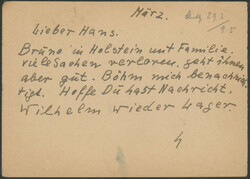 März.
Lieber Hans.
Bruno in Holstein mit Familie.
viele Sachen verloren. geht ihnen
aber gut. Böhm mich benachrich
tigt. Hoffe Du hast Nachricht.
Wilhelm wieder Lager.